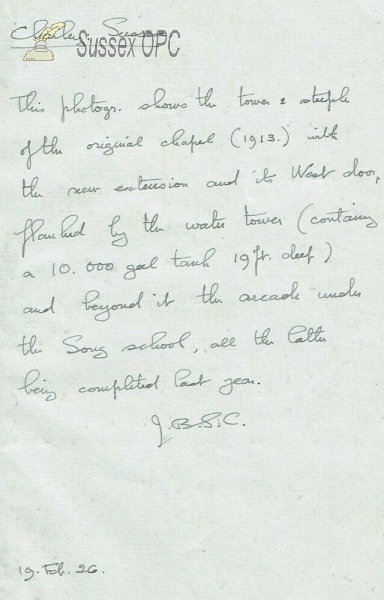 Sussex
Sussex OPC
This photogr. shows the tower & steeple
of the original chapel (1913.) with
the new extension and its West door,
flanked by the water tower (containing
a 10.000 gal tank 19 ft. deep)
and beyond it the arcade under
the Song school, all the latter
being completed last year.
J.B.S.C.
19. Feb. 26.